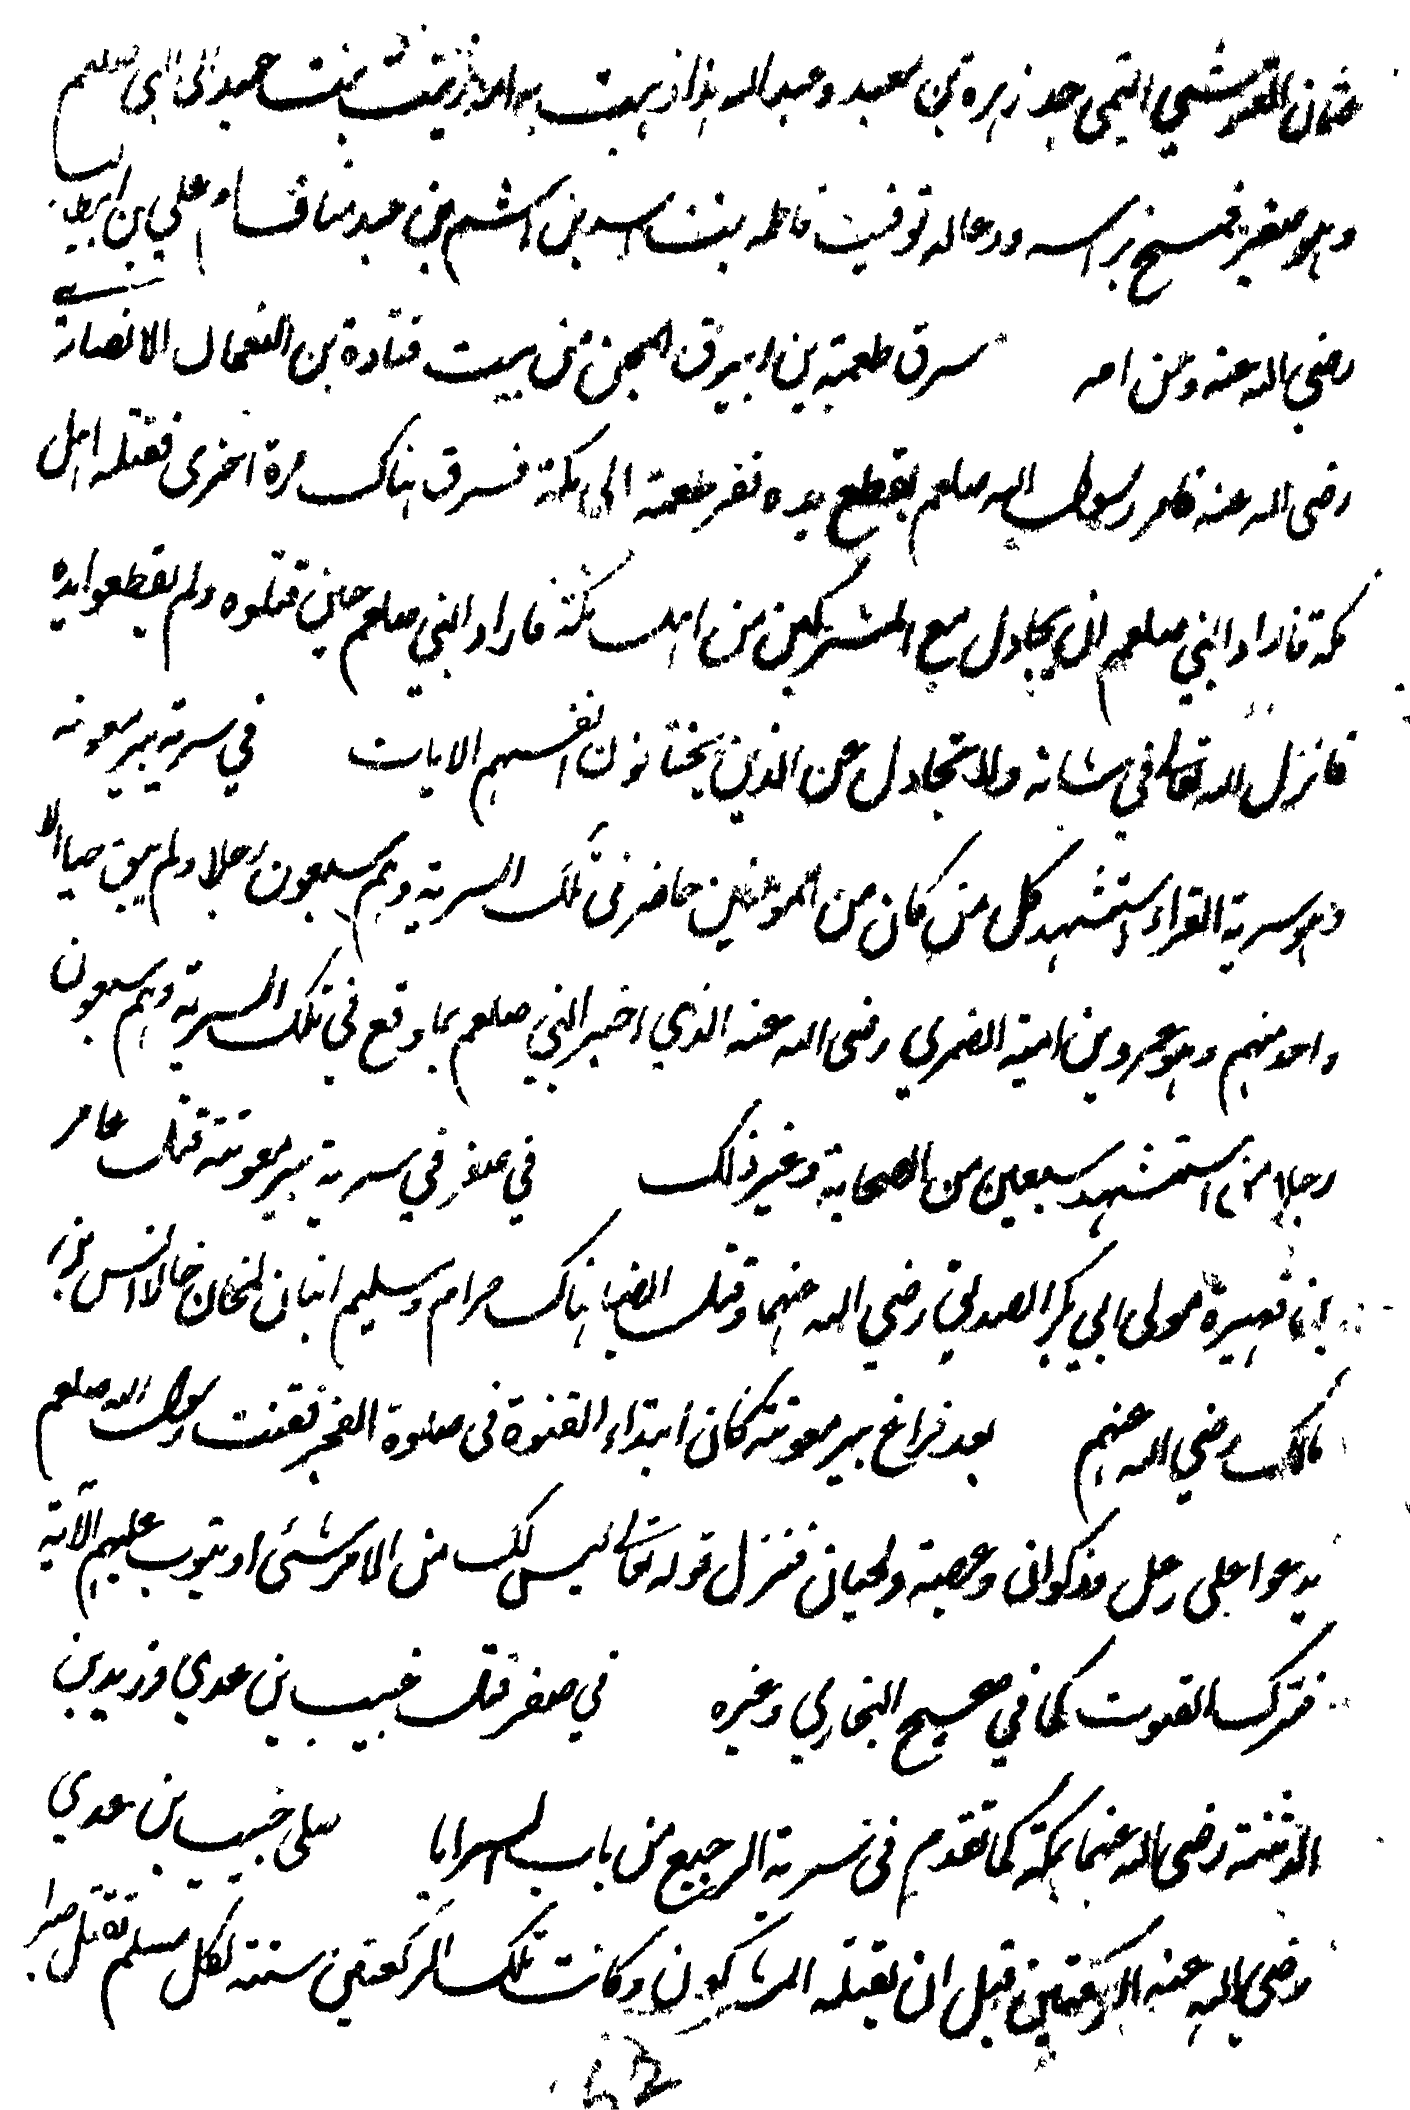 عثمان القرشي التيمي جد زهرة بن معبد وعبد الله هذا ذهبت به امه زينب بنت حميد الى النبي صلعم
وهو صغير فمسح براسه ودعا له توفيت فاطمه بنت اسد بن هاشم بن عبد مناف ام علي بن ابيطالب
رضي الله عنه وعن امه سرق طعمة بن ابيرق المجن من بيت قتادة بن النعمان الانصارى
رضى الله عنه فامر رسول الله صلعم بقطع يده ففر طعمة الى مكة فسرق هناك مرة اخرى فقتله اهل
مكة فاراد النبي صلعم ان يجادل مع المشركين من اهل مكة فاراد النبي صلعم حين قتلوه ولم يقطعوا يده
فانزل الله تعالى في شانه ولا تجادل عن الذين يختانون انفسهم الايات في سرية بير معونه
وهو سرية القراء استشهد كل من كان من المومنين حاضر في تلك السرية وهم سبعون رجلا ولم يبق حيا الا
واحد منهم وهو عمرو بن امية الضمري رضى الله عنه الذي اخبر النبي صلعم بما وقع في تلك السرية وهم سبعون
رجلا من استشهد سبعين من الصحابة وغير ذلك في صفر في سرية بير معونة قتل عامر
بن فهيرة مولى ابي بكر الصديق رضي الله عنهما وقتل ايضا هناك حرام وسليم ابنان لملحان خالا انس بن
مالك رضي الله عنهم بعد فراغ بير معونة كان ابتداء القنوة في صلوة الفجر فقنت رسول الله صلعم
يدعوا على رعل وذكوان وعصية ولحيان فنزل قوله تعالى ليس لك من الامر شئ او يتوب عليهم الآية
فترك القنوت كما في صحيح البخاري وغيره في صفر قتل خبيب بن عدي وزيد بن
الدثنة رضى الله عنهما بمكة كما تقدم في سرية الرجيع من باب السرايا صلى خبيب بن عدي
رضي الله عنه الركعتين قبل ان يقتله المشركون وكانت تلك الركعتين سنته لكل مسلم يقتل صبرا